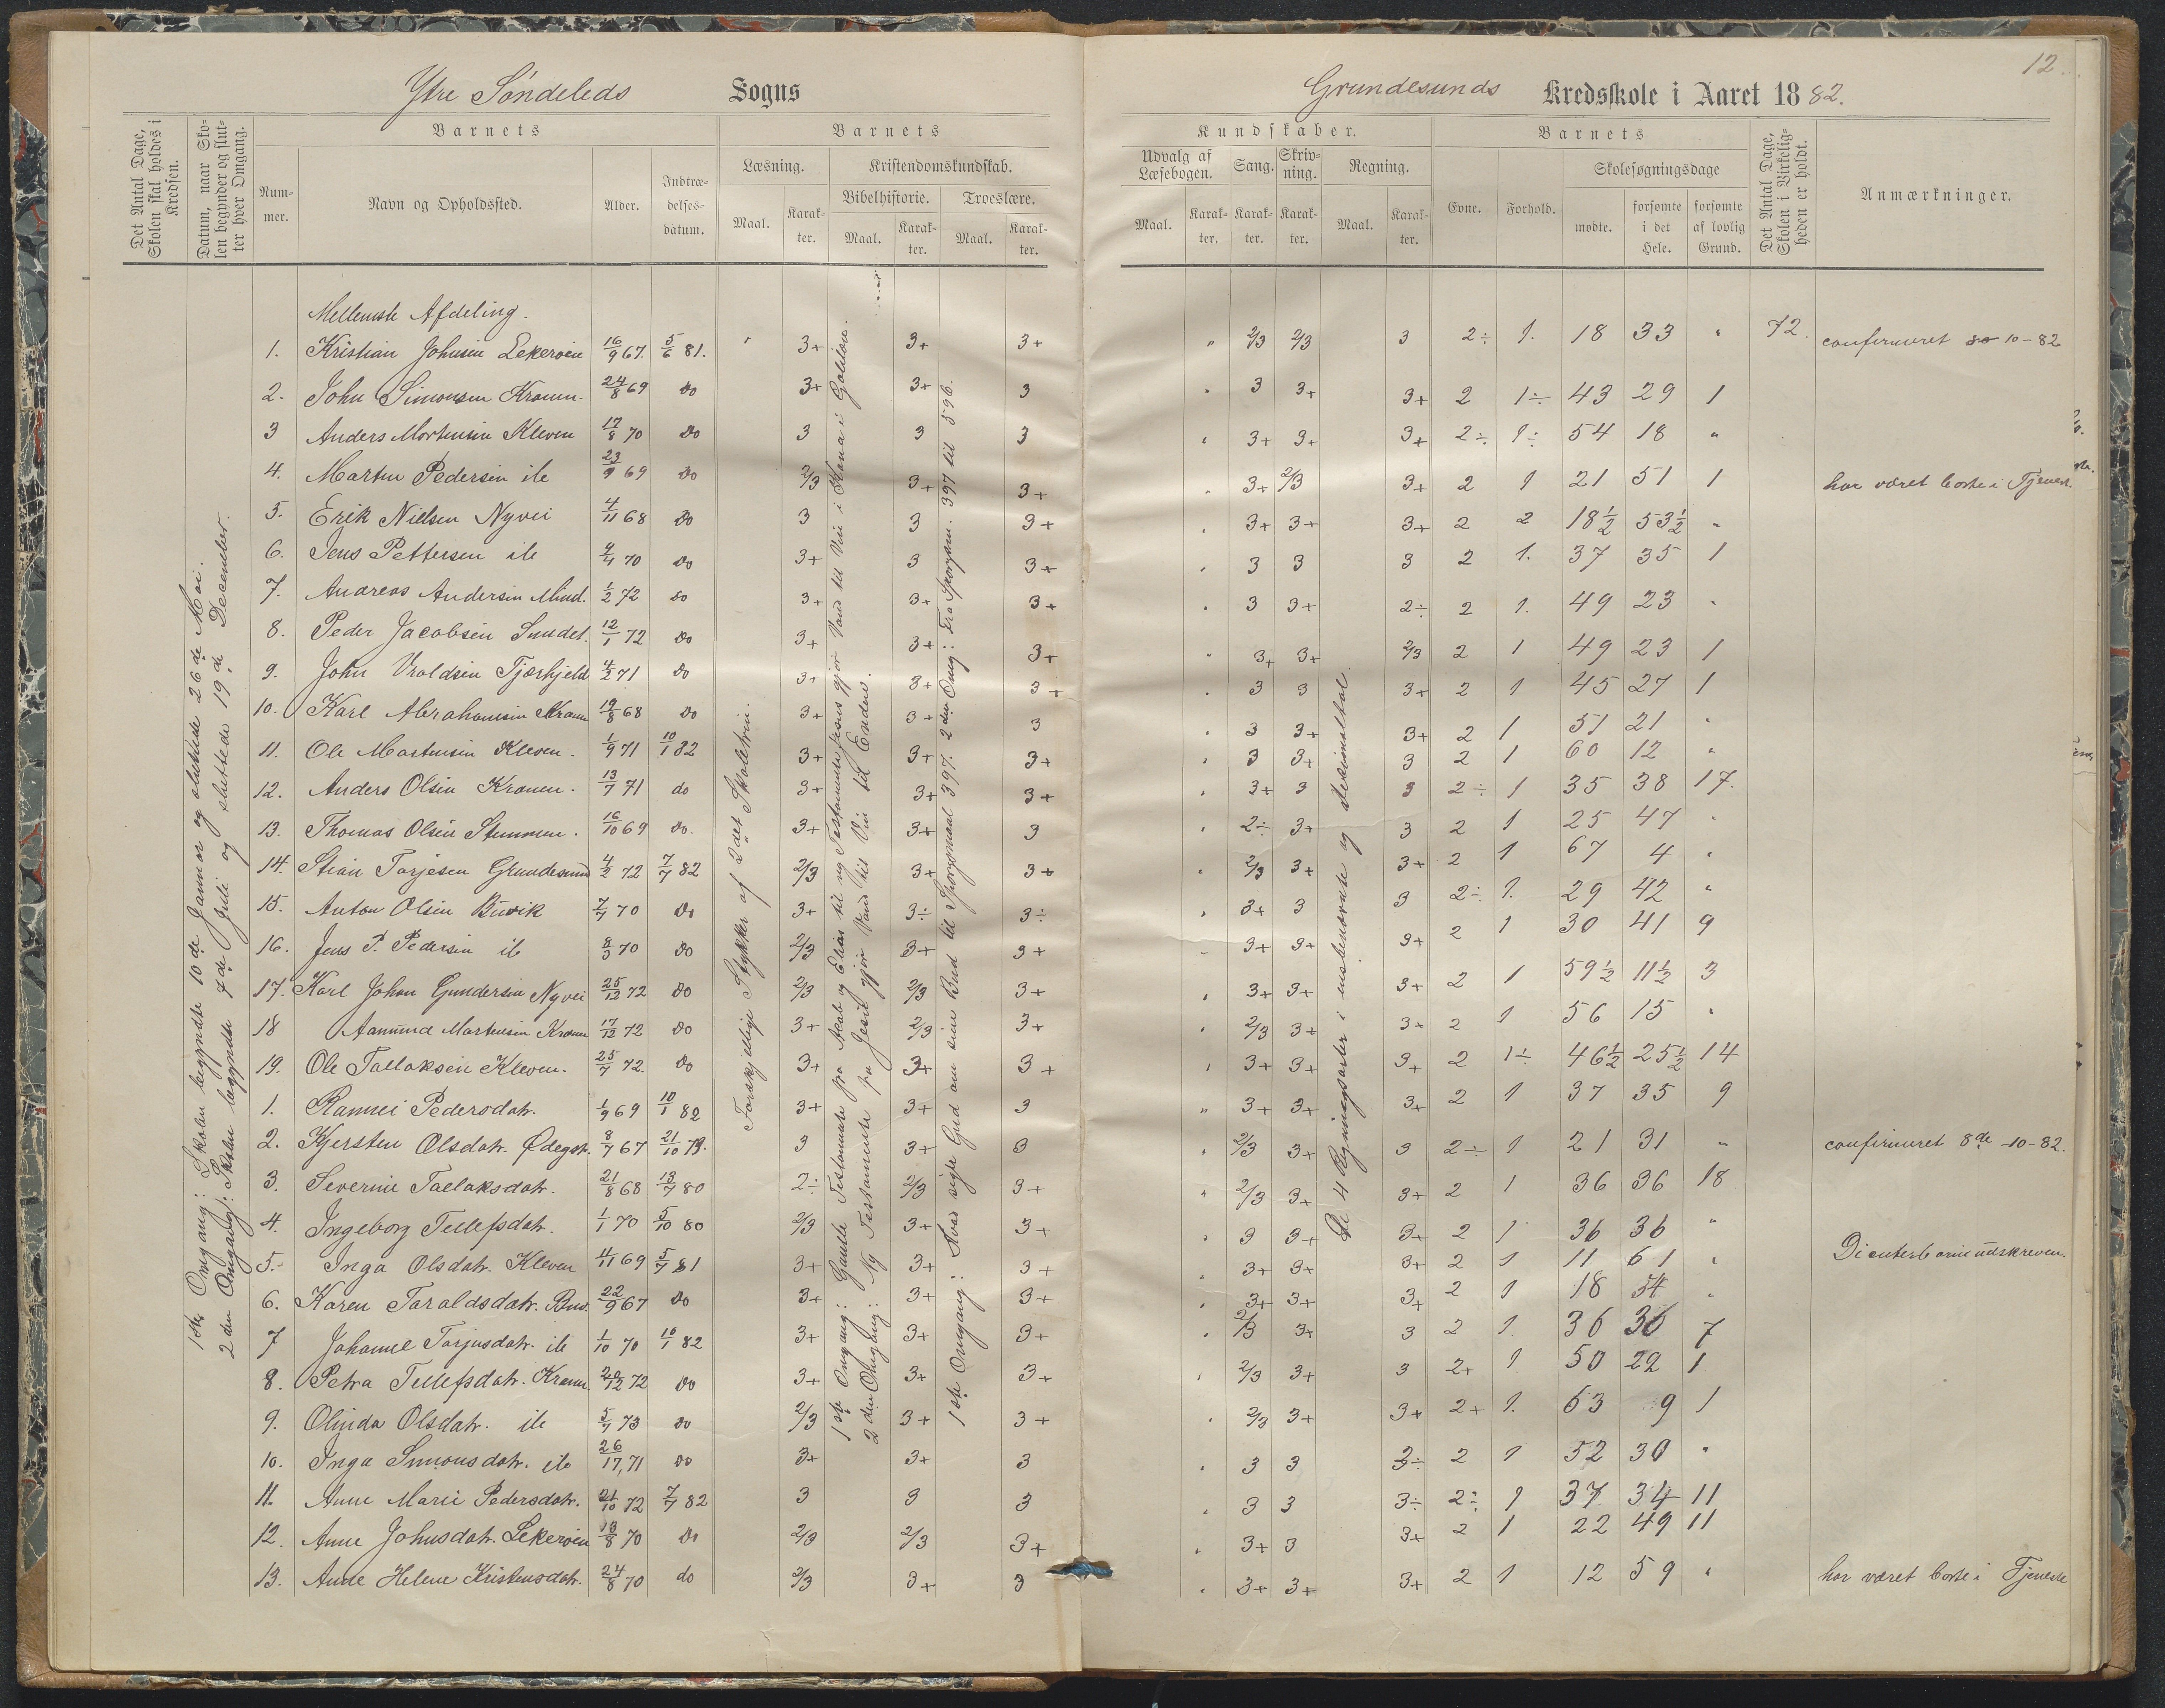 12.
Ytre Söndeleds Sogns
Grundesunds Kredsskole i Aaret 1882.
Det Antal Dage, Skolen skal holdes i Kredsen.
Datum, naar Skolen begynder og slutter hver Omgang.
Barnets
Nummer.
Navn og Opholdssted.
Alder.
Indtrædelsesdatum.
Barnets
Læsning.
Maal.
Karakter.
Kristendomskundskab.
Bibelhistorie.
Maal.
Karakter.
Troeslære.
Maal.
Karakter.
Kundskaber.
Udvalg af Læsebogen.
Maal.
Karakter.
Sang.
Karakter.
Skrivning.
Karakter.
Regning.
Maal.
Karakter.
Barnets
Evne.
Forhold.
Skolesøgningsdage
mødte.
forsømte i det Hele.
forsømte af lovlig Grund.
Det Antal Dage, Skolen i Virkeligheden er holdt.
Anmærkninger.
1ste Omgang: Skolen begyndte 10de Januar og sluttede 26de Mai.
2den Omgang: Skolen begyndte 7de Juli og sluttede 19de December.
Forskjellige Stykker af 2det Skoletrin.
2den Omgang: Ny Testamente fra
1ste Omgang: Hvad siger Gud om sine Bud til Spørgsmaal 397. 2den Omg: Fra Spørgsm. 397 til 596.
De 4 Regningsarter i ensbenævnte og decimaltal.
Mellemste Afdeling.
1. Kristian Johnsen Lekeröen 16/9 67. 5/6 81. " 3+ 3+ 3+ " 2/3 2/3 3 2÷ 1. 18 33 " 72. confirmeret 10-82
2. John Simonsen Kranen. 24/8 69 Do 3+ 3+ 3 " 3 3+ 3+ 2 1÷ 43 29 1
3 Anders Mortensen Kleven 17/8 70 Do 3 3 3 " 3+ 3+ 3+ 2÷ 1÷ 54 18 "
4. Martin Pedersen ile 23/9 69 Do 2/3 3+ 3+ " 3+ 2/3 3+ 2 1 21 51 1 har været borte i Tjenest.
5. Erik Nielsen Nyvei 4/11 68 Do 3 3 3+ " 3+ 3+ 3+ 2 2 18½ 53½ "
6. Jens Pettersen ile 4/4 70 Do 3+ 3 3+ " 3 3 3 2 1. 37 35 1
7. Andreas Andersen Mind. 1/2 72 Do 3+ 3+ 3+ " 3 3+ 2÷ 2 1. 49 23 "
8. Peder Jacobsen Sundet. 12/1 72 Do 3+ 3+ 3+ " 3+ 3+ 2/3 2 1 49 23 1
9. John Vraldsen Tjærfjeld 4/2 71 Do 3+ 3+ 3+ " 3 3 3+ 2 1 45 27 1
10. Karl Abrahamsen Kranen 19/8 68 Do 3+ 3+ 3 " 3 3+ 3+ 2 1 51 21 "
11. Ole Mortensen Kleven. 1/9 71 10/1 82 3+ 3+ 3+ " 3 3+ 3 2 1 60 12 "
12. Anders Olsen Kranen. 13/7 71 do 3+ 3+ 3+ " 3+ 3 3 2÷ 1 35 38 17.
13. Thomas Olsen Stummen. 16/10 69 do. 3+ 3+ 3 " 2÷ 3+ 3 2 1 25 47 "
14. Stian Torjesen Glundesund 4/2 72 7/7 82 2/3 3+ 3+ " 2/3 3+ 3+ 2 1 67 4 "
15. Anton Olsen Buvik 7/7 70 Do 3+ 3÷ 3÷ " 3+ 3 3 2÷ 1. 29 42 "
16. Jens P. Pedersen ile 8/3 70 Do 2/3 3+ 3+ " 3+ 3+ 3+ 2 1 30 41 9
17. Karl Johan Gundersen Nyvei 25/12 72 Do 2/3 2/3 3+ " 3+ 3+ 3+ 2 1 59½ 11½ 3
18 Aanund Mortensen Kranen 17/12 72 Do 3+ 2/3 3+ " 2/3 3+ 3+ 2 1 56 15 "
19. Ole Tallaksen Kleven. 25/7 72. Do 3+ 3+ 3+ " 3+ 3+ 3+ 2 1÷ 46½ 25½ 14
1. Ramei Pedersdatr. 1/9 69 10/1 82 3+ 3+ 3 " 3+ 3+ 3+ 2 1 37 35 9
2. Kjersten Olsdatr. Ødegsk. 8/7 67 21/10 79. 3 3+ 3 2/3 3+ 3 2÷ 1 21 31 " confirmeret 8de-10-82.
3. Severine Tallaksdatr. 21/8 68 13/7 80 2÷ 2/3 3+ " 2/3 3+ 3+ 2 1 36 36 18
4. Ingeborg Tellefsdatr. 1/1 70 5/10 80 2/3 3+ 3+ 3 3+ 3+ 2 1 36 36 "
5. Inga Olsdatr. Kleven 4/11 69 5/7 81 3+ 3+ 3+ " 3+ 3+ 3+ 2 1 11 61 " udskreven.
6. Karen Taraldsdatr. Buv. 22/9 67 Do 3+ 3+ 3+ " 3+ 3+ 3+ 2 1 18 54 "
7 Johanne Torjusdatr. ile 1/10 70 10/1 82 3+ 3+ 3+ " 2/3 3+ 3 2 1. 36 36 7
8. Petra Tellefsdatr. Kranen. 20/12 72 Do 3+ 3+ 3+ " 2/3 3+ 3 2+ 1. 50 22 1
9. Olinda Olsdatr. ile 5/7 73 Do 2/3 3+ 3+ " 2/3 3+ 3+ 2+ 1. 63 9 1
10. Inga Simonsdatr. ile 26/17, 71 Do 3+ 3+ 3 " 3 3 3÷ 2 1 52 30 "
11. Anne Marie Pedersdatr. 21/10 72 7/7 82 3 3 3 " 3 3 3÷ 2÷ 1 37 34 11
12. Anne Johnsdatr. Lekeröen 13/8 70 Do 2/3 2/3 3+ " 3+ 3 3+ 2 1 22 49 11
13. Anne Helene Kristensdatr. 24/8 70 do 2/3 3+ 3 " 3+ 3+ 3+ 2 1 12 59 " har været borte i Tjeneste